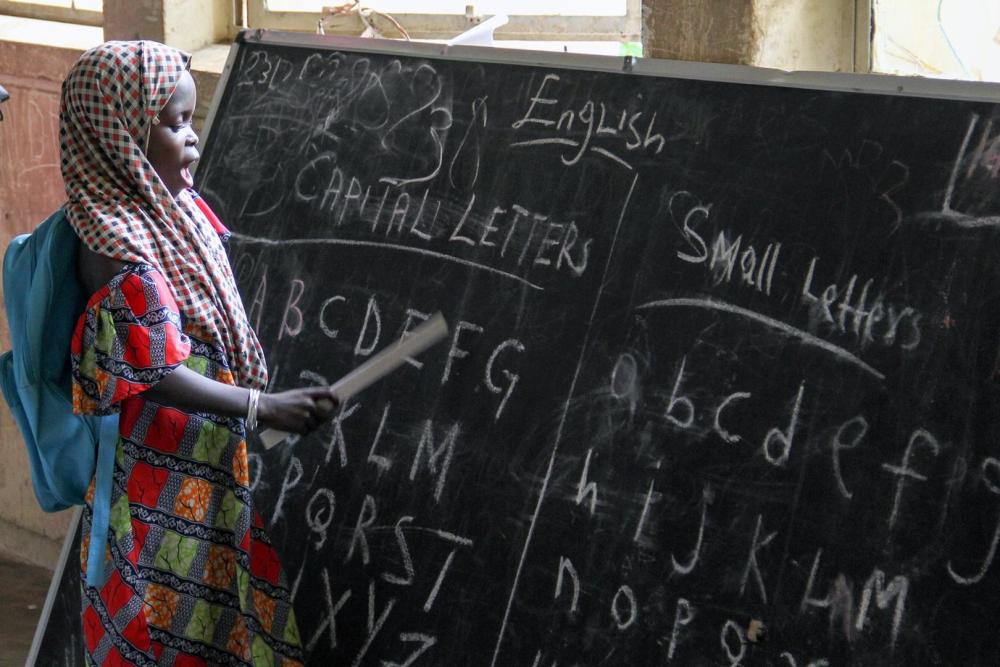 English
CAPITALL LETTERS
A B C D E F G
K L M
O P Q R S T
X Y Z
Small Letters
a b c d e f g
h i j k L M
n o p q